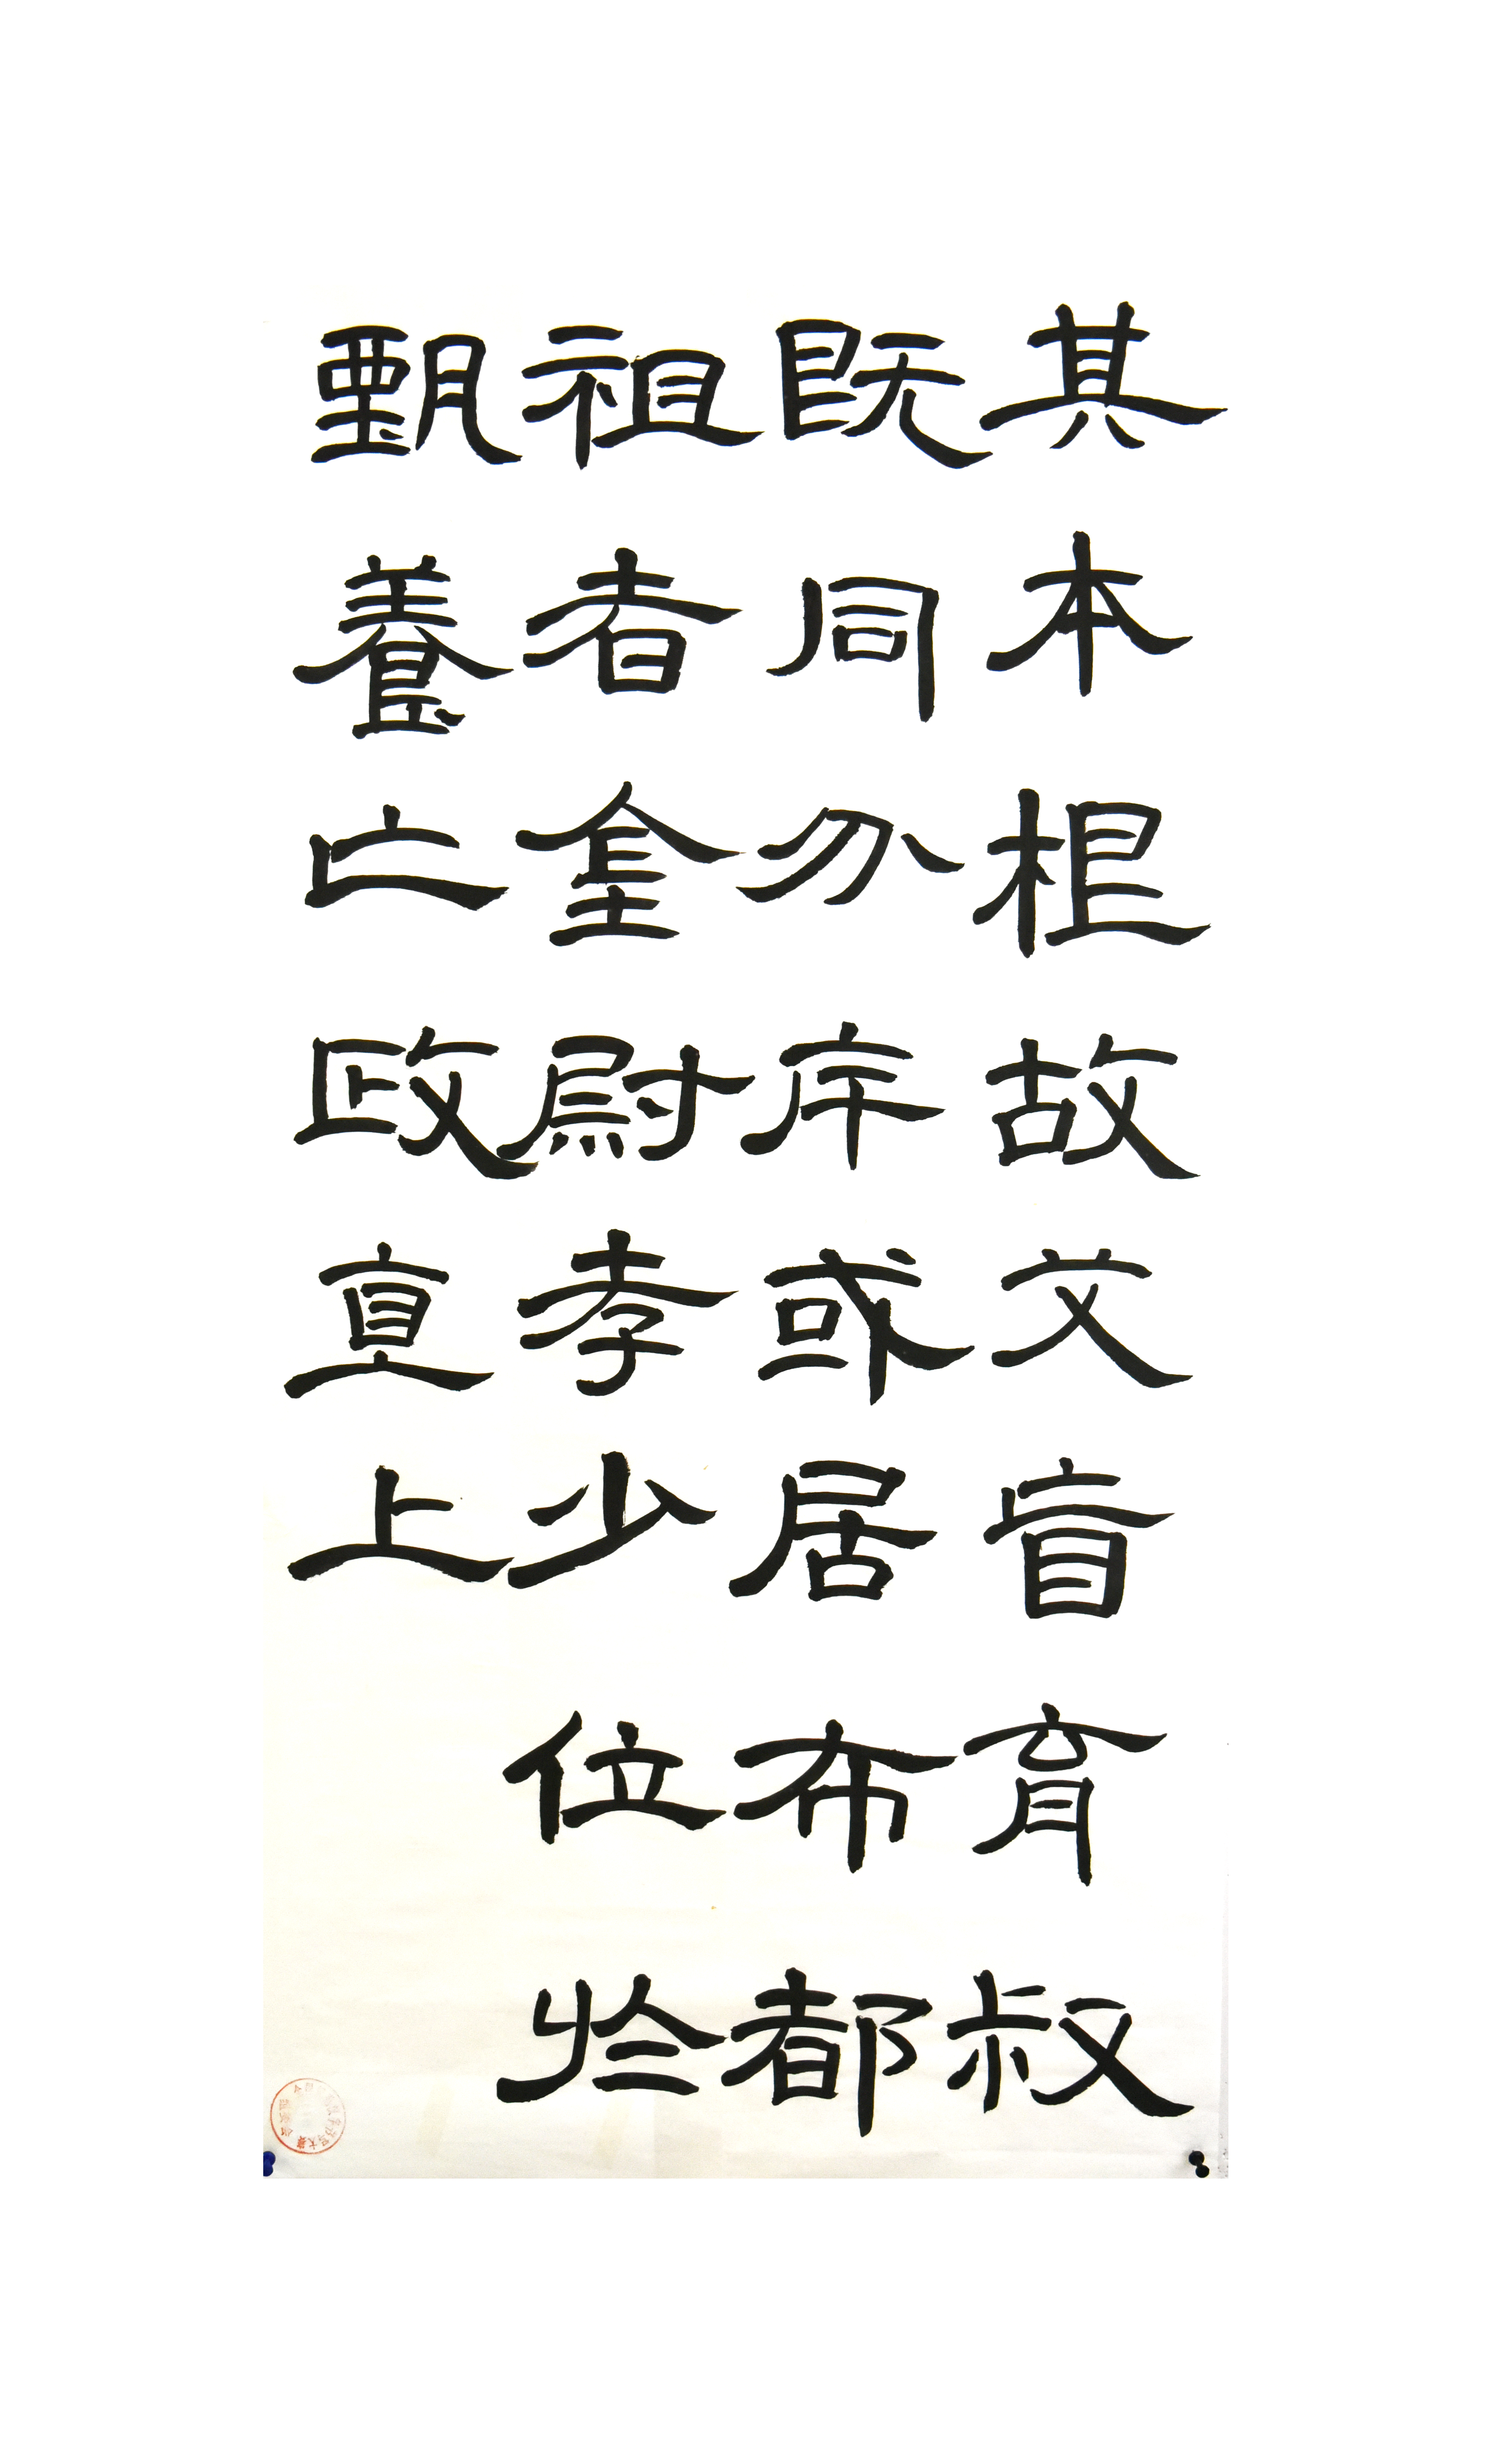 其本根故文盲育叔
既同分或居布都
祖者尉孝少位於
甄養亡政上